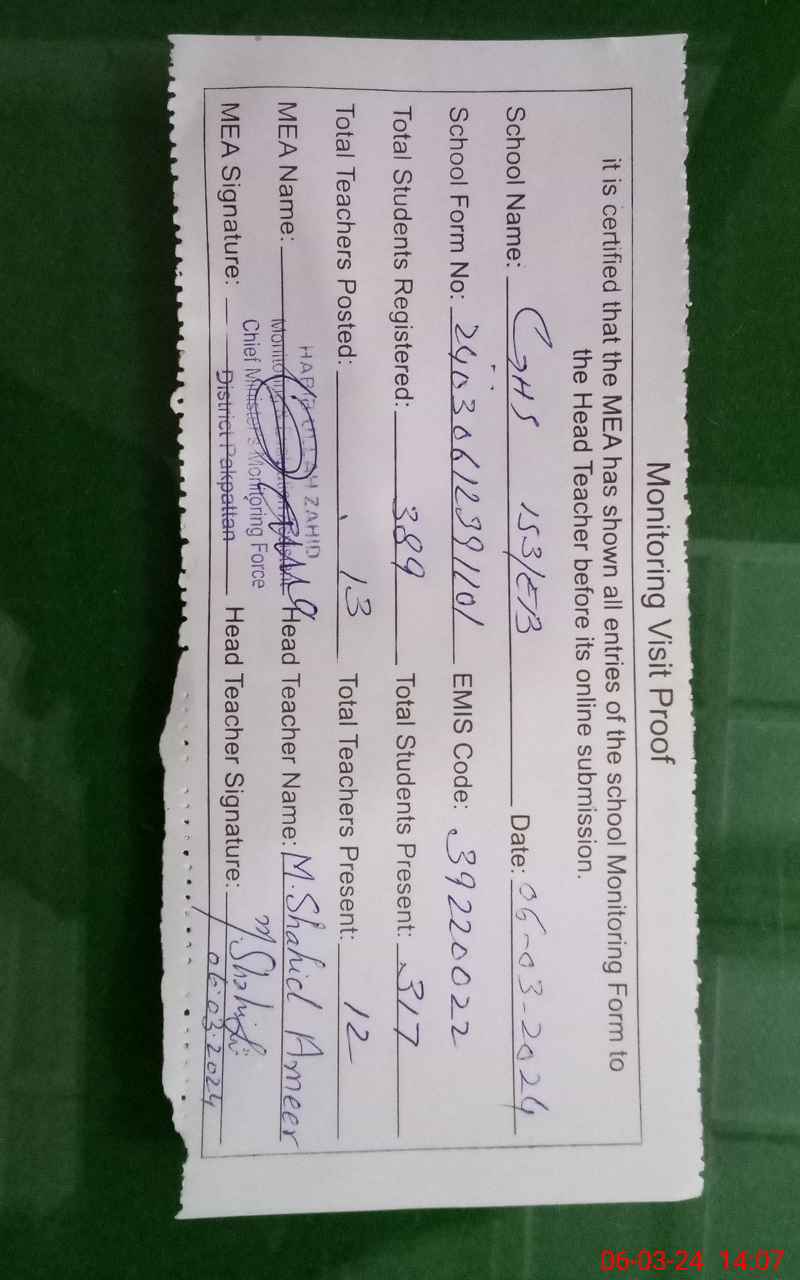 Monitoring Visit Proof
it is certified that the MEA has shown all entries of the school Monitoring Form to
the Head Teacher before its online submission.
School Name: GHS 153/EB Date: 06-03-2024
School Form No: 24030612391101 EMIS Code: 39220022
Total Students Registered: 389 Total Students Present: 317
Total Teachers Posted: 13 Total Teachers Present: 12
HABIB ULLAH ZAHID
MEA Name: Head Teacher Name: M.Shahid Ameer
Chief Minister's Monitoring Force
MEA Signature: District Pakpattan Head Teacher Signature: M.Shahid
06.03.2024
06-03-24 14:07